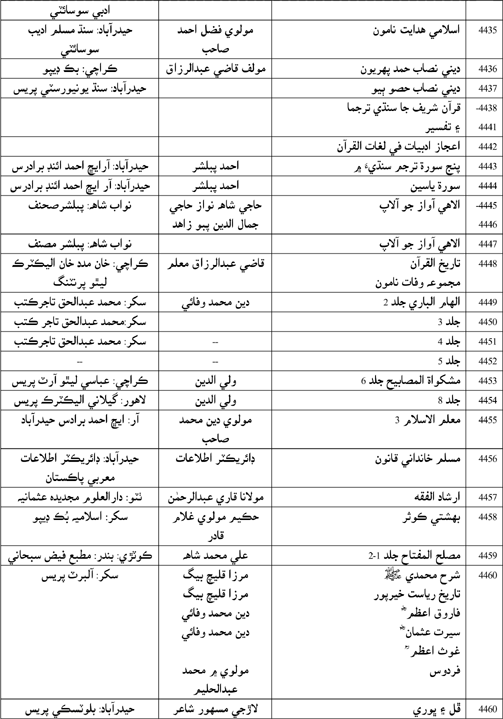 ادبي سوسائٽي
4435 اسلامي هدايت نامون مولوي فضل احمد حيدرآباد: سنڌ مسلم اديب
صاحب سوسائٽي
4436 ديني نصاب حمد پهريون مولف قاضي عبدالرزاق ڪراچي: بڪ ڊيپو
4437 ديني نصاب حصو ٻيو حيدرآباد: سنڌ يونيورسٽي پريس
4438- قرآن شريف جا سنڌي ترجما
4441 ۽ تفسير
4442 اعجاز ادبيات في لغات القرآن
4443 پنج سورة ترجم سنڌيءَ ۾ احمد پبلشر حيدرآباد: آرايڇ احمد ائنڊ برادرس
4444 سورة ياسين احمد پبلشر حيدرآباد: آر ايڇ احمد ائنڊ برادرس
4445- الاهي آواز جو آلاپ حاجي شاھ نواز حاجي نواب شاھ: پبلشرصحنف
4446 جمال الدين ببو زاهد
4447 الاهي آواز جو آلاپ نواب شاھ: پبلشر مصنف
4448 تاريخ القرآن قاضي عبدالرزاق معلم ڪراچي: خان مدد خان اليڪٽرڪ
مجموعہ وفات نامون ليٿو پرنٽنگ
4449 الهام الباري جلد 2 دين محمد وفائي سکر: محمد عبدالحق تاجرڪتب
4450 جلد 3 سکر:محمد عبدالحق تاجر ڪتب
4451 جلد 4 -- سکر: محمد عبدالحق تاجرڪتب
4452 جلد 5 -- --
4453 مشڪواة المصابيح جلد 6 ولي الدين ڪراچي: عباسي ليٿو آرٽ پريس
4454 جلد 8 ولي الدين لاهور: گيلاني اليڪٽرڪ پريس
4455 معلم الاسلام 3 مولوي دين محمد آر: ايڇ احمد برادس حيدرآباد
صاحب
4456 مسلم خانداني قانون ڊائريڪٽر اطلاعات حيدرآباد: ڊائريڪٽر اطلاعات
مغربي پاڪستان
4457 ارشاد الفقه مولانا قاري عبدالرحمٰن ٺٽو: دارالعلوم مجديده عثمانيہ
4458 بهشتي ڪوثر حڪيم مولوي غلام سکر: اسلاميہ بُڪ ڊيپو
قادر
4459 مصلح المفتاح جلد 1-2 علي محمد شاھ ڪوٽڙي: بندر: مطبع فيض سبحاني
4460 شرح محمدي ﷺ مرزا قليچ بيگ سکر: آلبرٽ پريس
تاريخ رياست خيرپور مرزا قليچ بيگ
فاروق اعظم دين محمد وفائي
سيرت عثمان دين محمد وفائي
غوث اعظم
فردوس مولوي ۾ محمد
عبدالحليم
4460 ڦل ۽ ڀوري لاڙجي مسهور شاعر حيدرآباد: بلوٽسڪي پريس